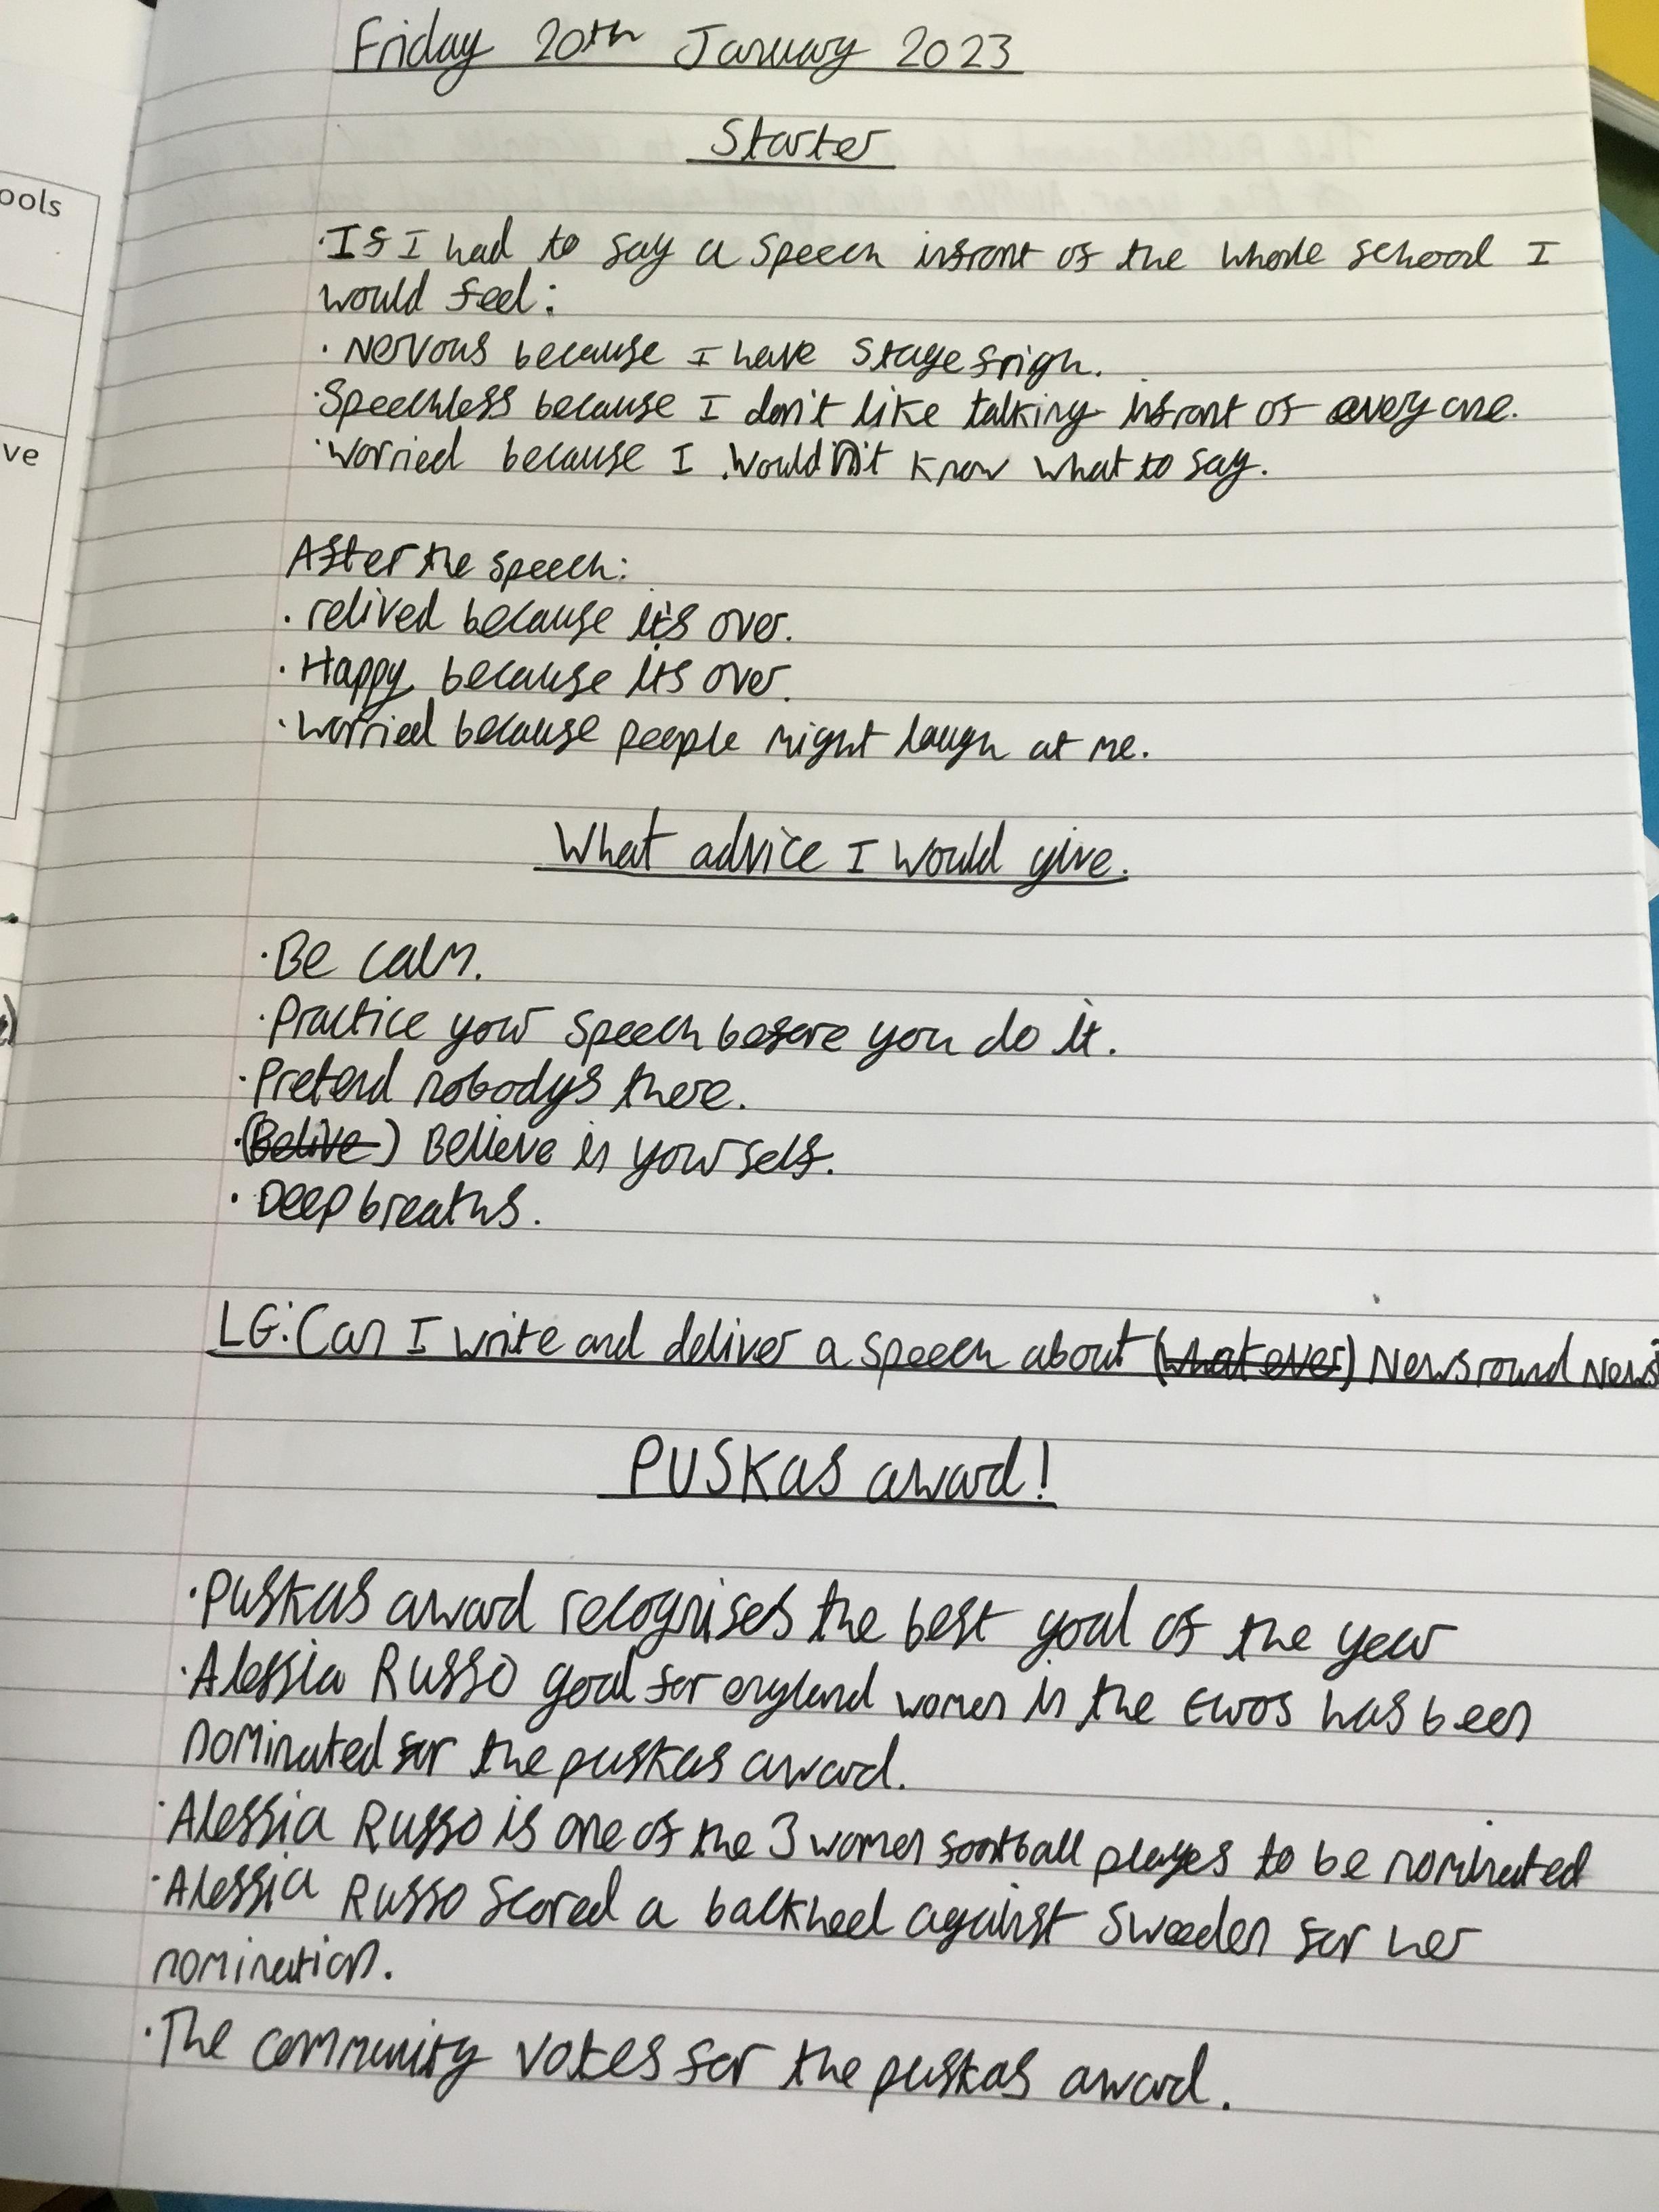 Friday 20th January 2023
Starter
ools
· If I had to say a speech infront of the whole school I
would feel:
· Nervous because I have stage frigh.
· Speechless because I don't like talking infront of every one.
ve
· Worried because I wouldn't know what to say.
After the speech:
· relived because it's over.
· Happy because its over.
· worried because people might laugh at me.
What advice I would give.
· Be calm.
· Practice your speech before you do it.
· Pretend nobodys there.
· (Belive) Believe in your self.
· Deep breaths.
LG: Can I write and deliver a speech about (whatever) Newsround News
PUSKAS award!
· Puskas award recognises the best goal of the year
· Alessia Russo goal for england women in the Euros has been
nominated for the puskas award.
· Alessia Russo is one of the 3 women football players to be nominated
· Alessia Russo scored a backheel against Sweden for her
nomination.
· The community votes for the puskas award.